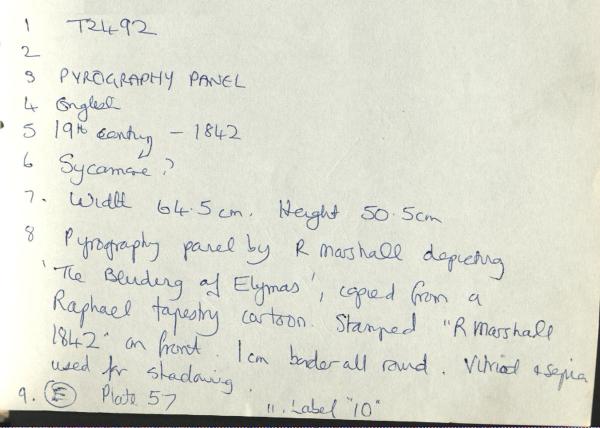 1 T2492
2
3 PYROGRAPHY PANEL
4 English
5 19th century - 1842
6 Sycamore?
7. Width 64.5cm. Height 50.5cm
8 Pyrography panel by R Marshall depicting
'The Blinding of Elymas', copied from a
Raphael tapestry cartoon. Stamped "R Marshall
1842" on front. 1cm border all round. Vitriol & sepia
used for shadowing.
9. (E) Plate 57 11. Label "10"